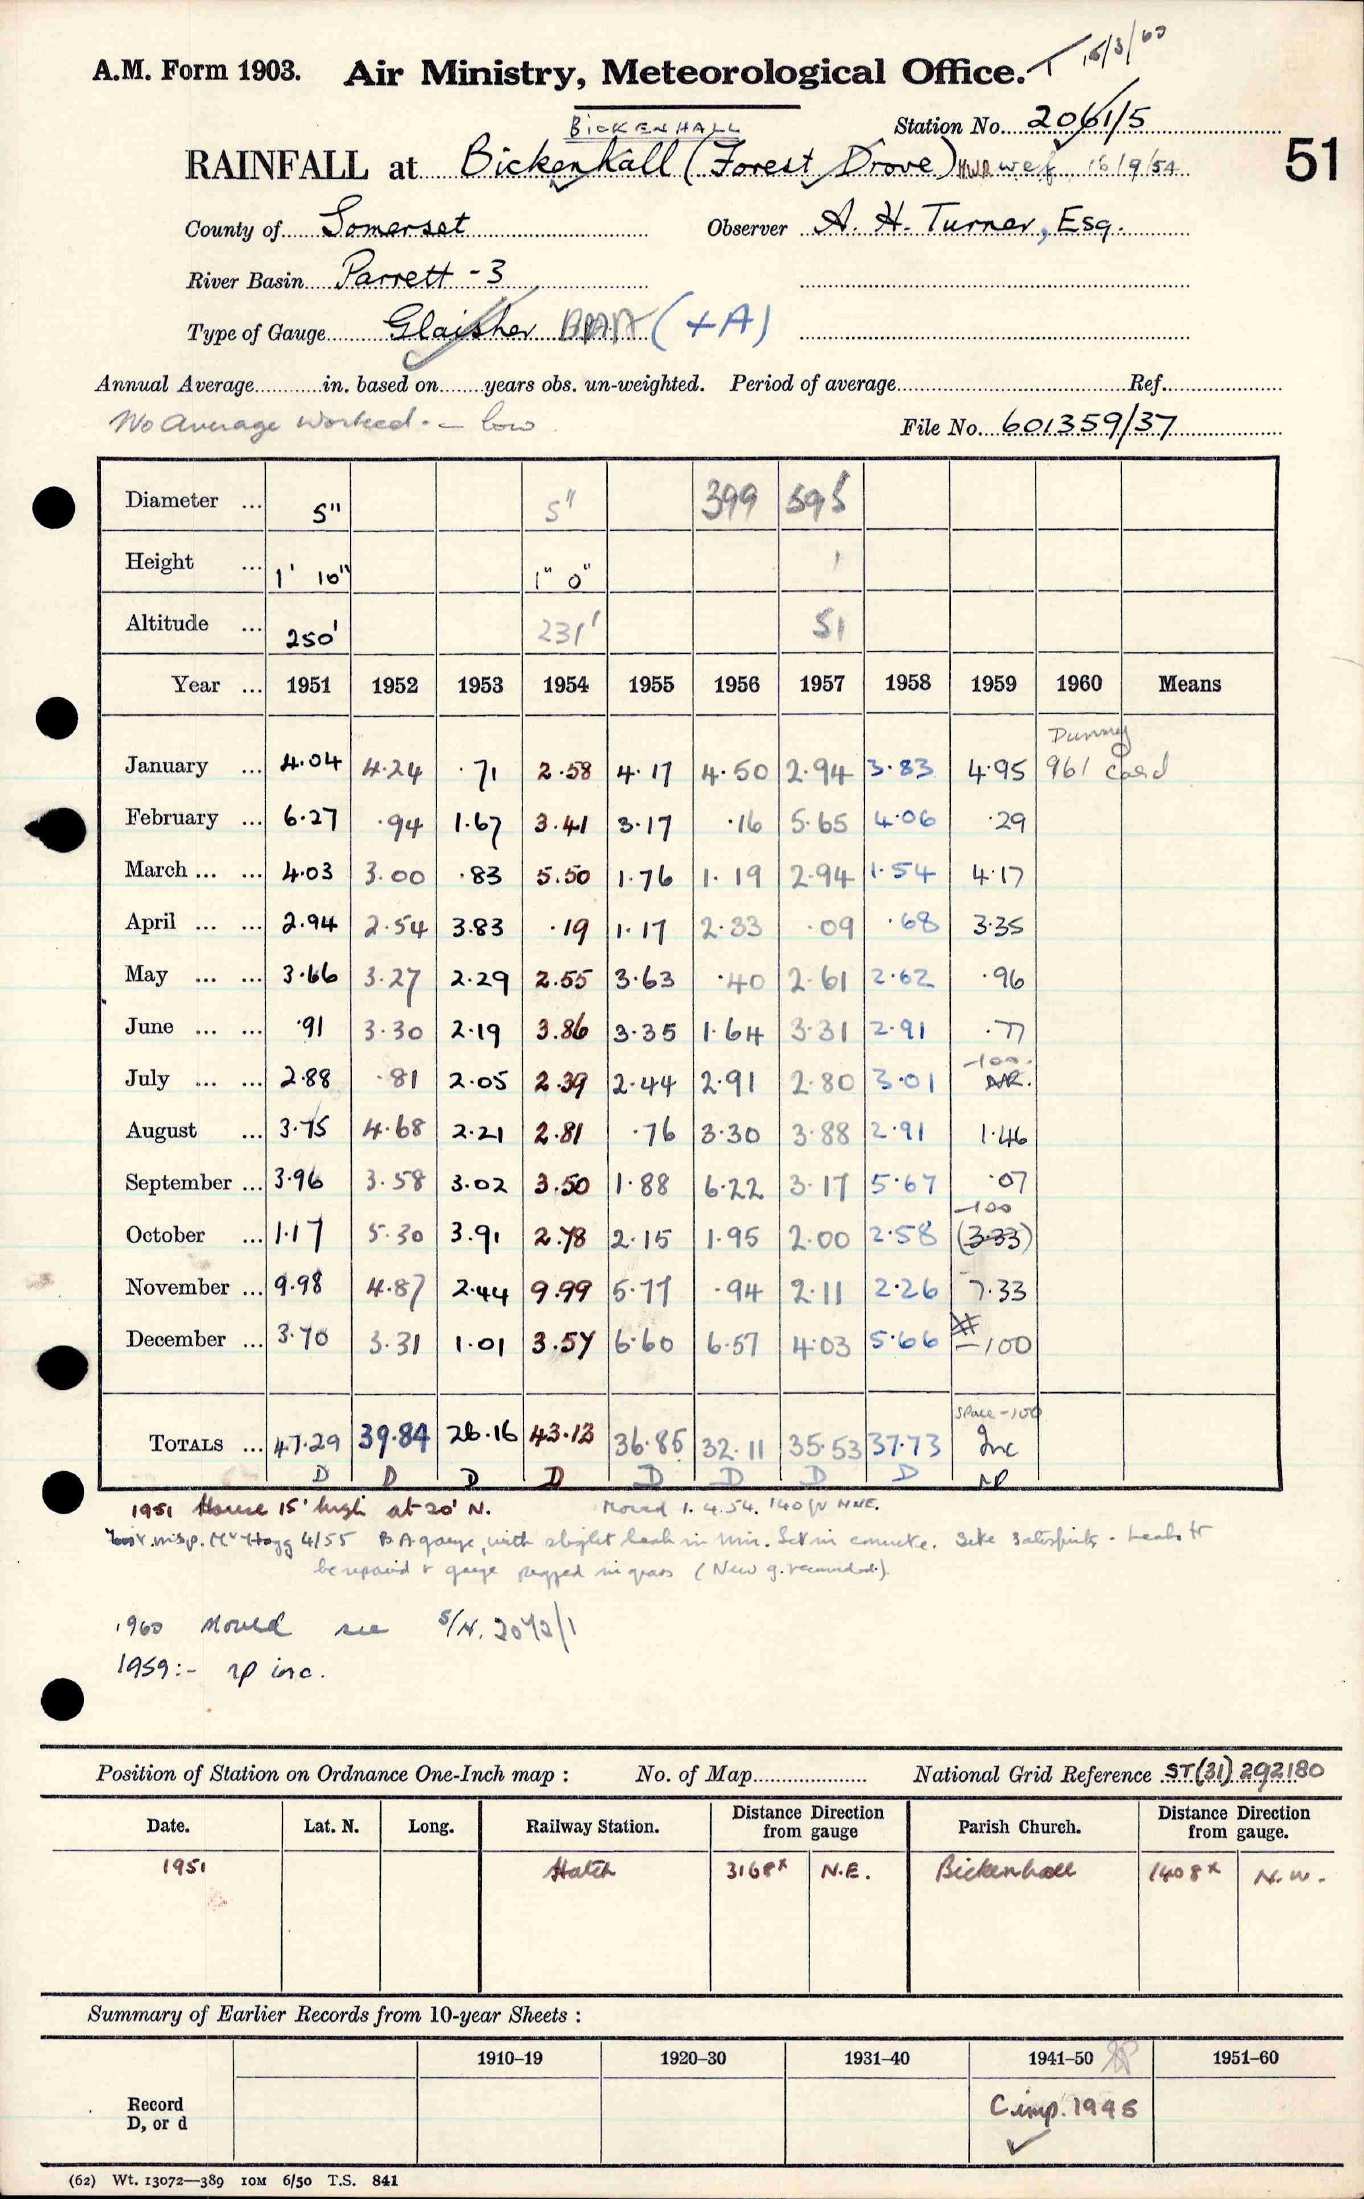 15/3/60
A.M. Form 1903. Air Ministry, Meteorological Office.
BICKENHALL Station No. 2061/5
RAINFALL at Bickenhall (Forest Drove) wef 16/9/54 51
County of Somerset Observer A. H. Turner, Esq.
River Basin Parrett - 3
Type of Gauge Glaisher (+A)
Annual Average in. based on years obs. un-weighted. Period of average Ref.
No Average worked. - low File No. 601359/37
Diameter ... 5" 5" 399 595
Height ... 1' 10" 1" 0" 1
Altitude ... 250' 231' 51
Year ... 1951 1952 1953 1954 1955 1956 1957 1958 1959 1960 Means
Dummy
January ... 4.04 4.24 .71 2.58 4.17 4.50 2.94 3.83 4.95 961 Card
February ... 6.27 .94 1.67 3.41 3.17 .16 5.65 4.06 .29
March ... ... 4.03 3.00 .83 5.50 1.76 1.19 2.94 1.54 4.17
April ... ... 2.94 2.54 3.83 .19 1.17 2.33 .09 .68 3.35
May ... ... 3.66 3.27 2.29 2.55 3.63 .40 2.61 2.62 .96
June ... ... .91 3.30 2.19 3.86 3.35 1.64 3.31 2.91 .77
-100
July ... ... 2.88 .81 2.05 2.39 2.44 2.91 2.80 3.01 NR.
August ... 3.75 4.68 2.21 2.81 .76 3.30 3.88 2.91 1.46
September ... 3.96 3.58 3.02 3.50 1.88 6.22 3.17 5.67 .07
-100
October ... 1.17 5.30 3.91 2.78 2.15 1.95 2.00 2.58 (3.33)
November ... 9.98 4.87 2.44 9.99 5.77 .94 2.11 2.26 7.33
December ... 3.70 3.31 1.01 3.57 6.60 6.57 4.03 5.66 -100
Space -100
TOTALS ... 47.29 39.84 26.16 43.13 36.85 32.11 35.53 37.73 Inc
D D D D D D D D NP
1951 House 15' high at 20' N. Moved 1.4.54. 140 NNE.
insp. Mr Hogg 4/55 BA gauge, with slight leak in . Set in concrete. Site . Leaks to
be repaired & gauge pegged in grass (New g. recommended).
1960 Moved see S/N. 2072/1
1959:- np inc.
Position of Station on Ordnance One-Inch map : No. of Map National Grid Reference ST(31) 292180
Date. Lat. N. Long. Railway Station. Distance Direction from gauge Parish Church. Distance Direction from gauge.
1951 Hatch 3168x N.E. Bickenhall 1408x N.W.
Summary of Earlier Records from 10-year Sheets :
1910–19 1920–30 1931–40 1941–50 1951–60
Record
D, or d C. imp. 1945
(62) Wt. 13072—389 10M 6/50 T.S. 841